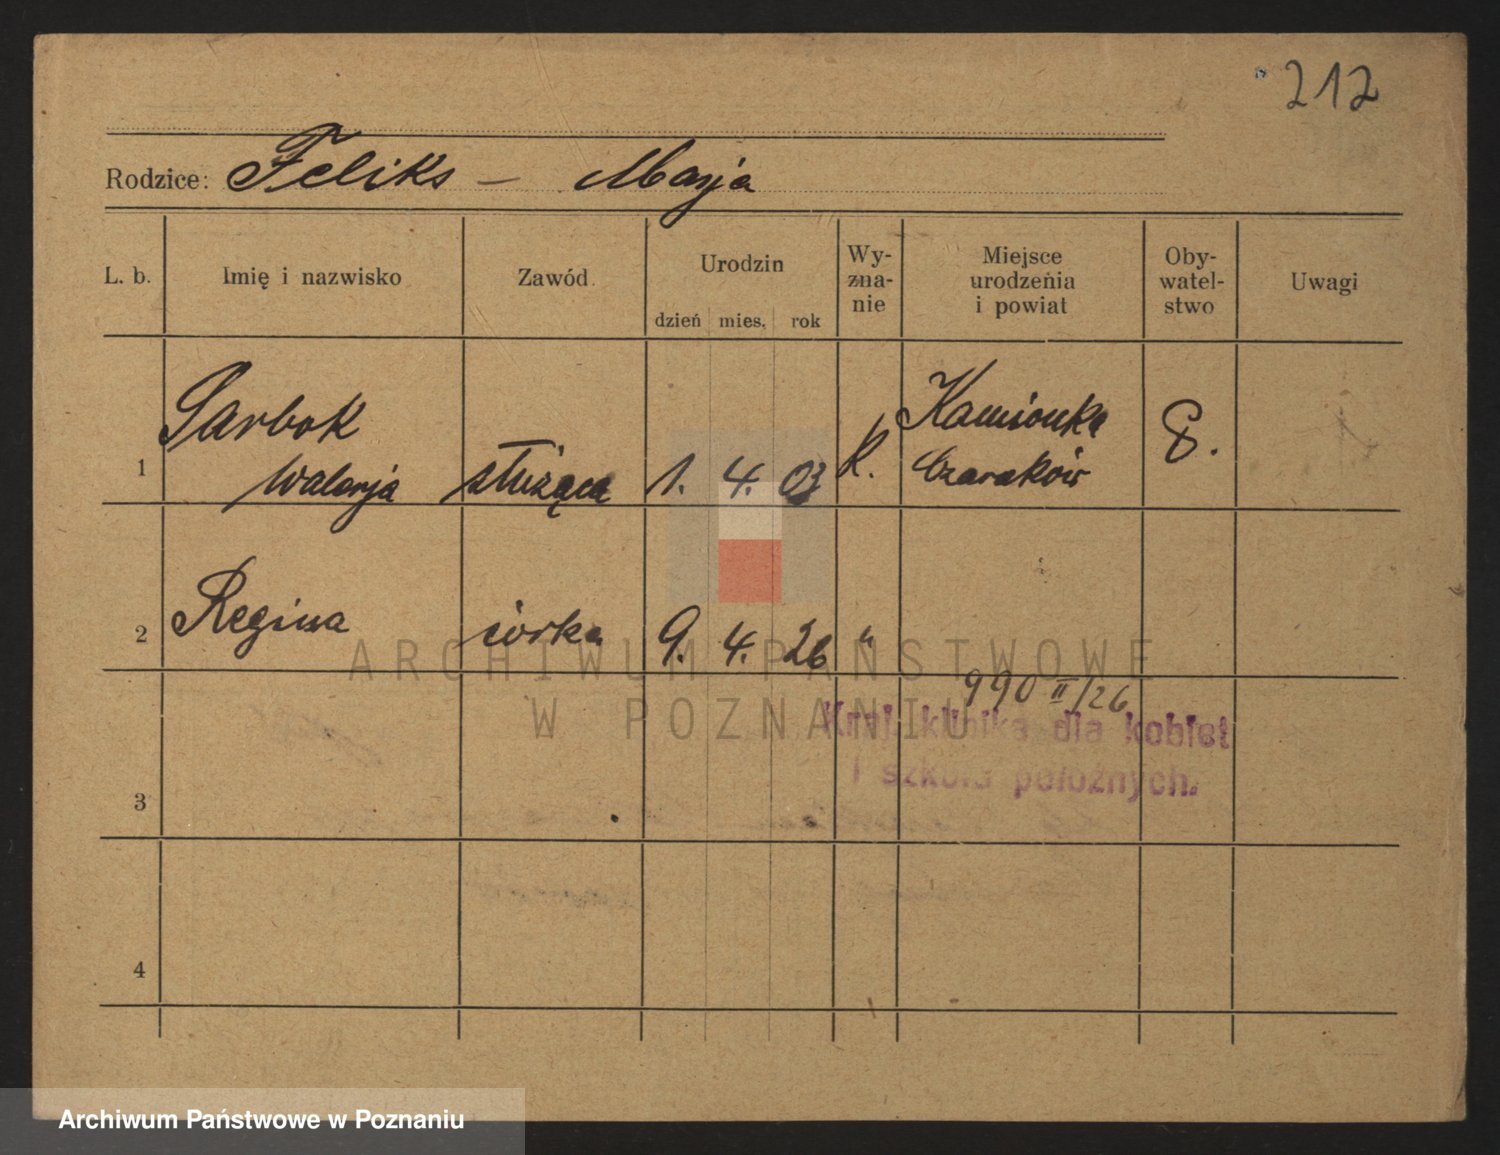 212
Rodzice: Feliks – Marja
L. b. Imię i nazwisko Zawód Urodzin Wy-zna-nie Miejsce urodzenia i powiat Oby-watel-stwo Uwagi
dzień mies. rok
Sarbok Kamionka
1 Walerja służąca 1. 4. 03 K. Czarnków P.
2 Regina córka 9. 4. 26 "
ARCHIWUM PAŃSTWOWE
W POZNANIU
990 II/26
Kraj. klinika dla kobiet
i szkoła położnych.
3
4
Archiwum Państwowe w Poznaniu